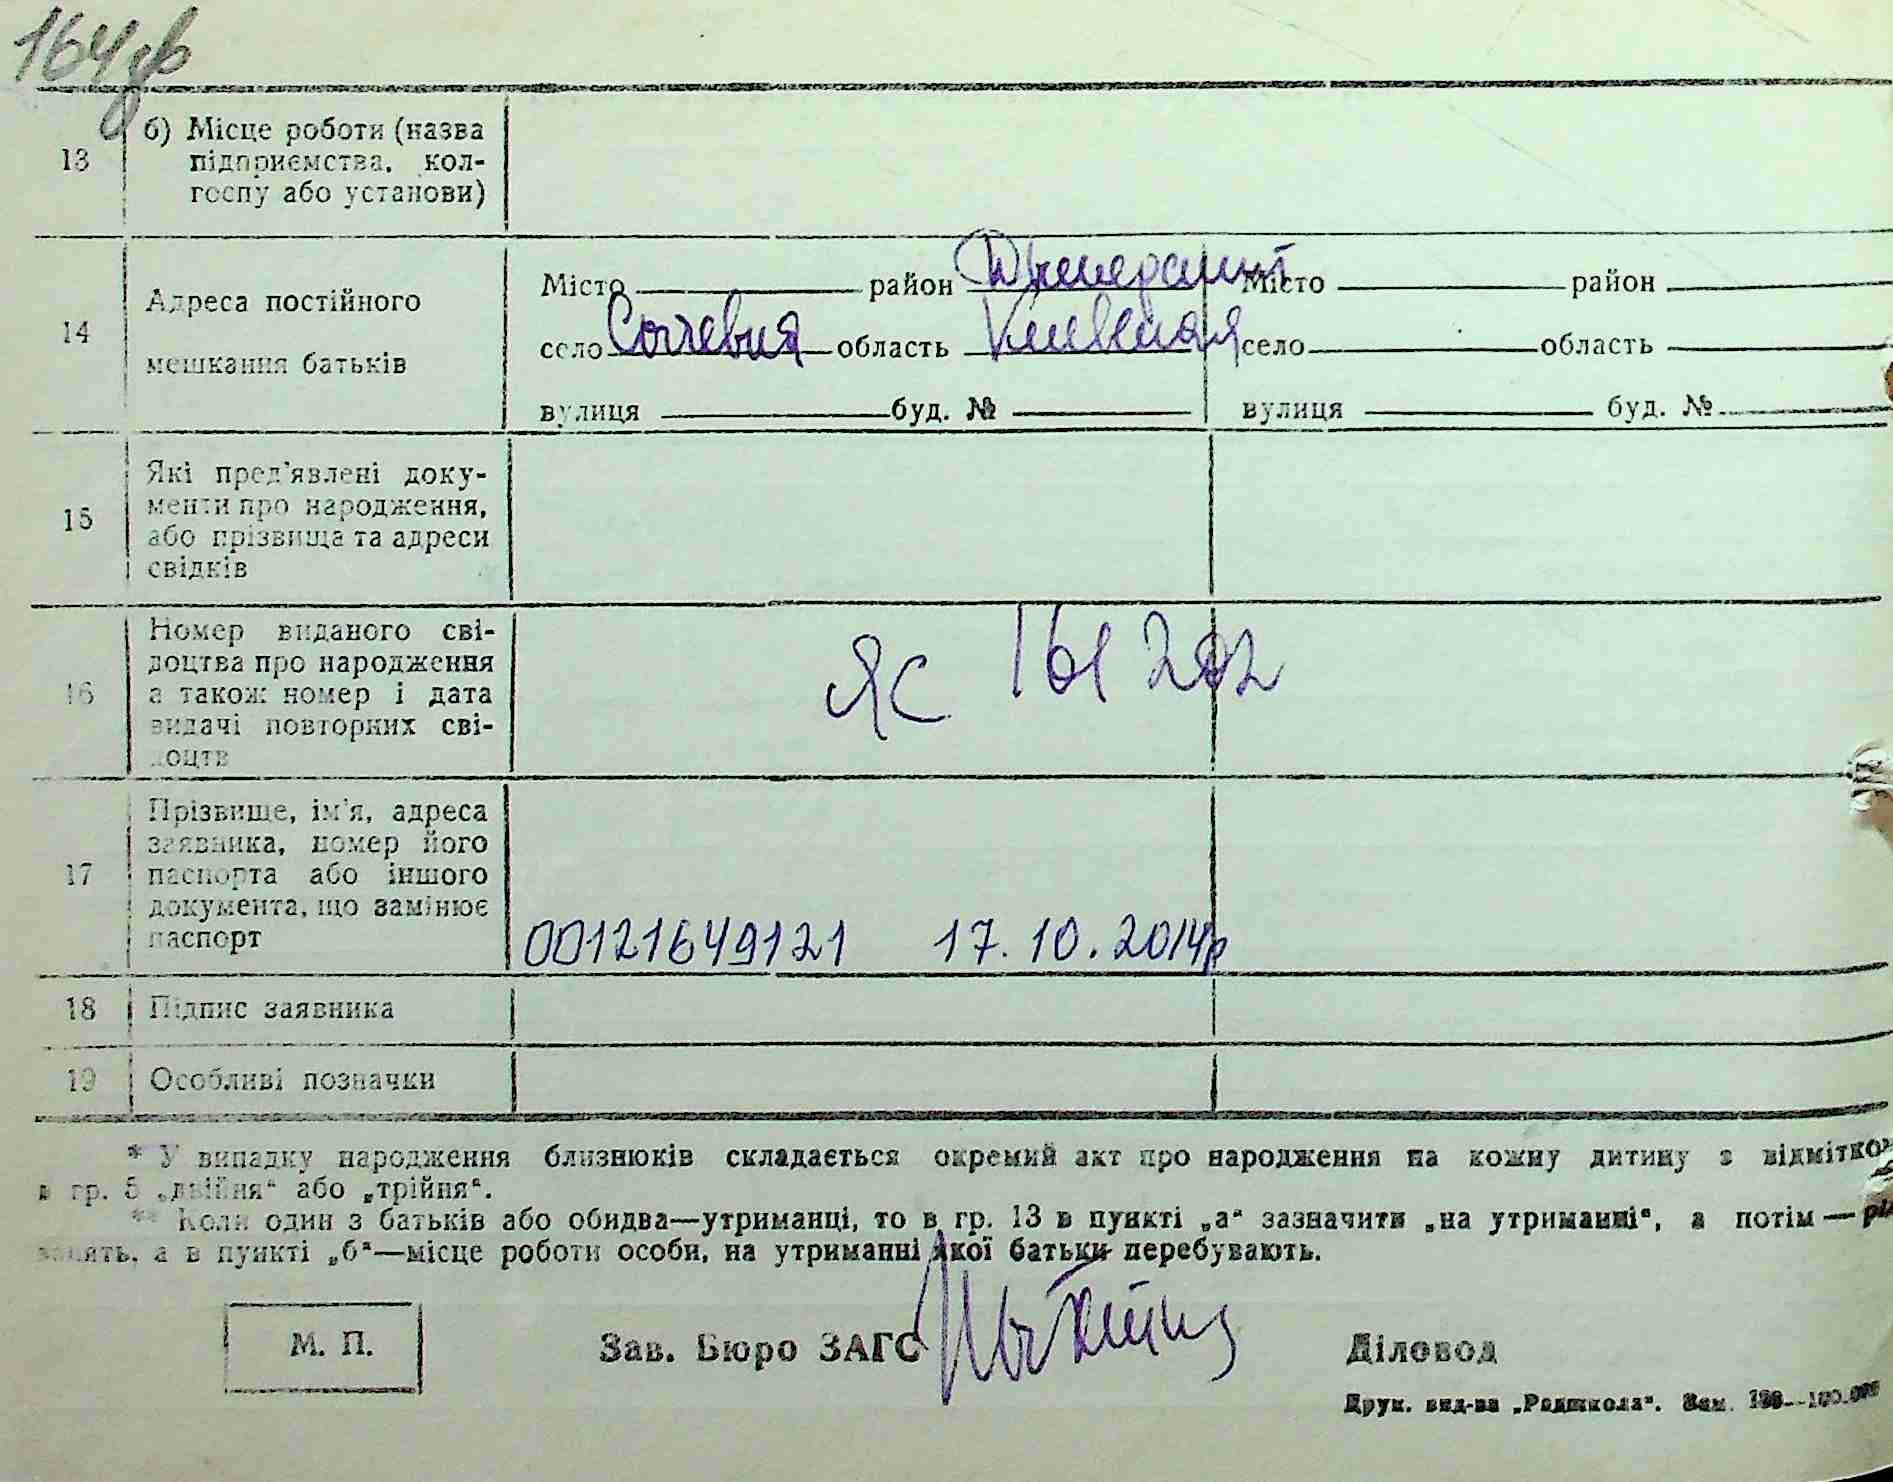 164зв
13 б) Місце роботи (назва
підприємства, кол-
госпу або установи)
14 Адреса постійного
мешкання батьків
Місто район Димерский Місто район
село область Киевская село область
вулиця буд. № вулиця буд. №
15 Які пред'явлені доку-
менти про народження,
або прізвища та адреси
свідків
16 Номер виданого сві-
доцтва про народження
а також номер і дата
видачі повторних сві-
доцтв
ЯС 161202
17 Прізвище, ім'я, адреса
заявника, номер його
паспорта або іншого
документа, що замінює
паспорт
00121649121 17.10.2014р
18 Підпис заявника
19 Особливі позначки
* У випадку народження близнюків складається окремий акт про народження на кожну дитину з відміткою
в гр. 5 „двійня“ або „трійня“.
** Коли один з батьків або обидва—утриманці, то в гр. 13 в пункті „а“ зазначити „на утриманні“, а потім — рід
занять, а в пункті „б“—місце роботи особи, на утриманні якої батьки перебувають.
М. П. Зав. Бюро ЗАГС Діловод
Друк. вид-ва „Радшкола“. Зам.